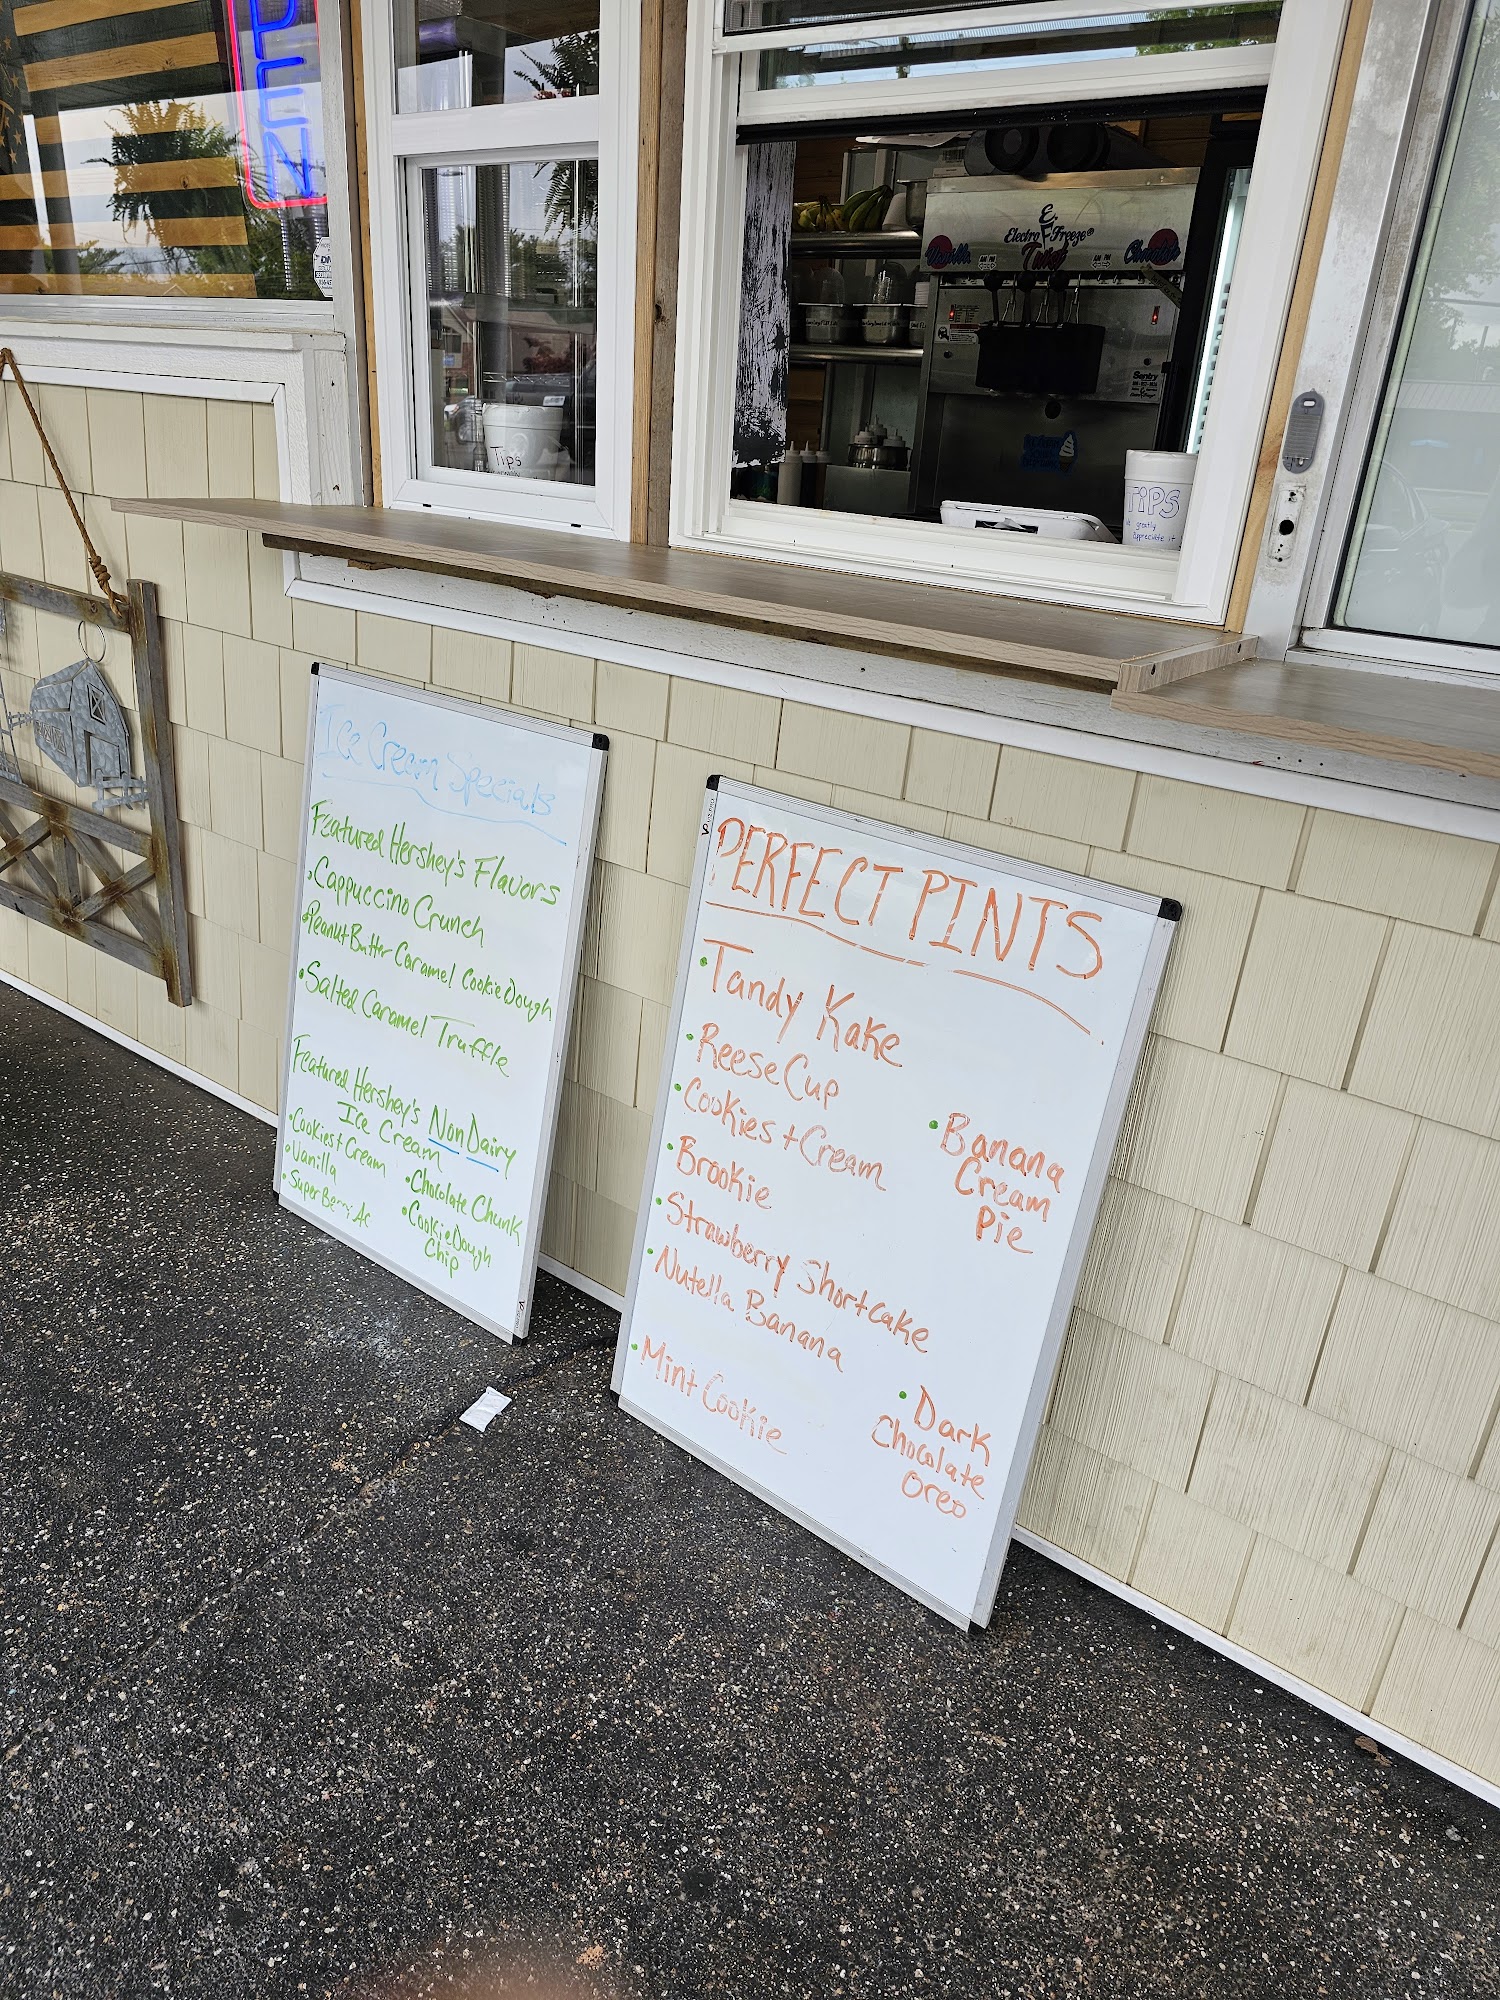 PEN
E.F.
Electro Freeze®
Vanilla
Twist
Chocolate
Sentry
Tips
TIPS
greatly
appreciate it
Ice Cream Specials
Featured Hershey's Flavors
• Cappuccino Crunch
• Peanut Butter Caramel Cookie Dough
• Salted Caramel Truffle
Featured Hershey's Non Dairy
Ice Cream
• Cookies + Cream
• Vanilla
• Super Berri Ac
• Chocolate Chunk
• Cookie Dough
Chip
PERFECT PINTS
• Tandy Kake
• Reese Cup
• Cookies + Cream
• Brookie
• Strawberry Shortcake
• Nutella Banana
• Mint Cookie
• Banana
Cream
Pie
• Dark
Chocolate
Oreo